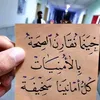 حينما نُقارن الصحة
بالأمنيات
كل أمانينا سخيفة